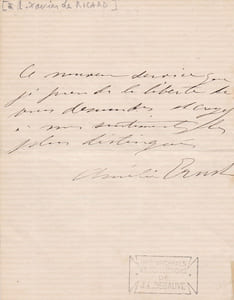 [à L. Xavier de RICARD]
Ce nouveau service que
je prends la liberté de
vous demander et croyez
à mes sentiments les
plus distingués
Amélie Ernst
DE
J.L. DEBAUVE